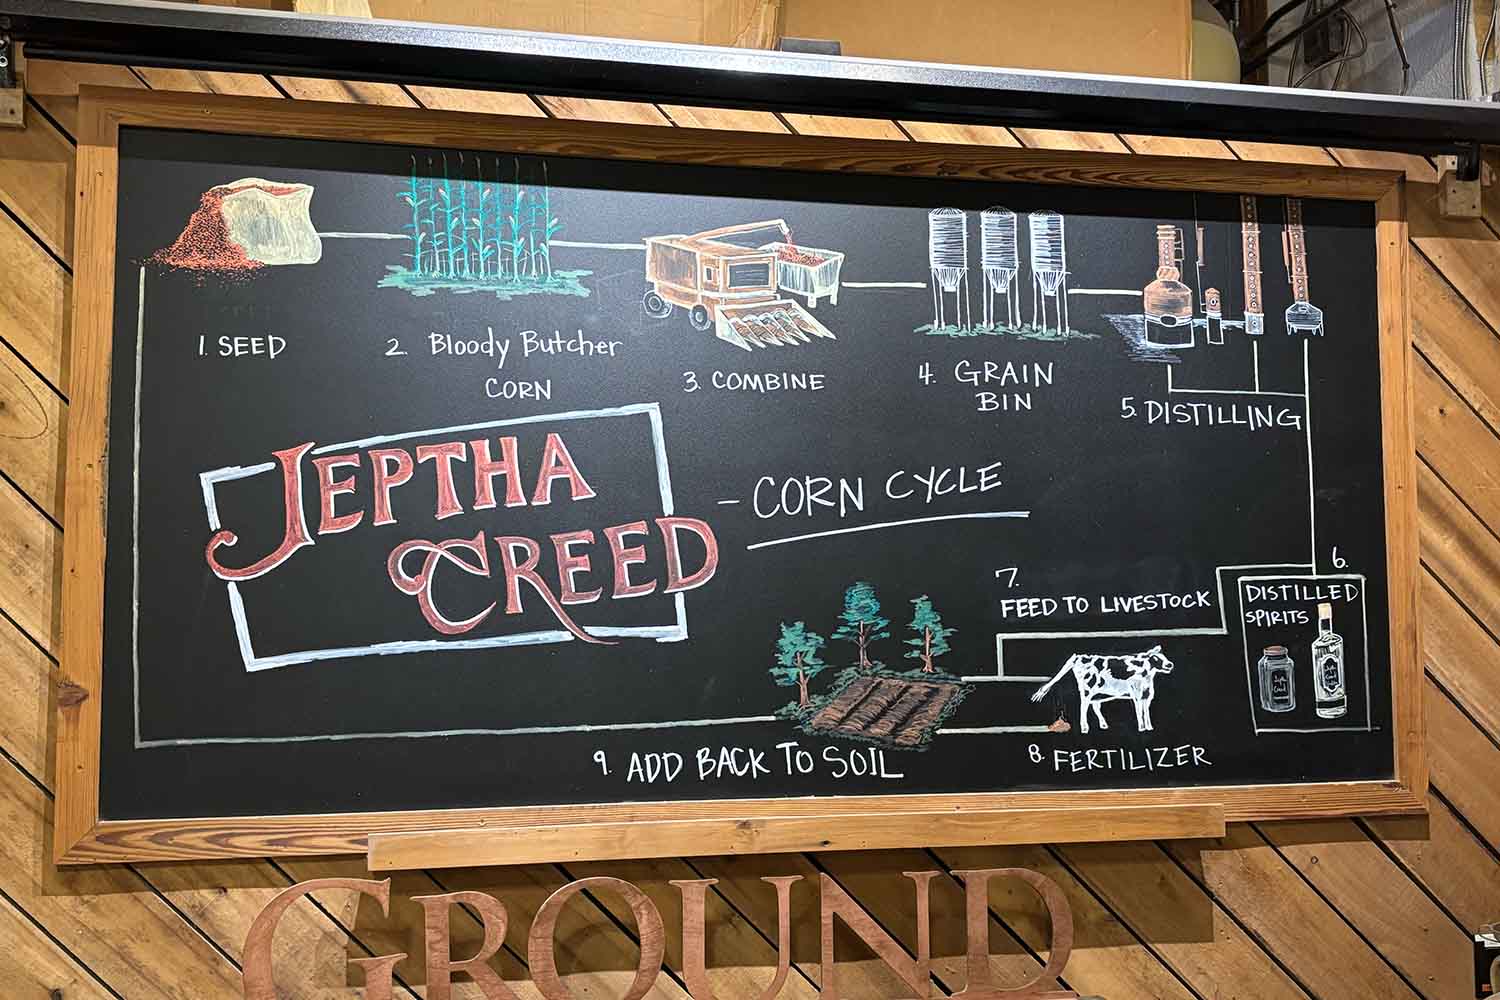 1. SEED
2. Bloody Butcher
CORN
3. COMBINE
4. GRAIN
BIN
5. DISTILLING
JEPTHA
CREED
- CORN CYCLE
6.
DISTILLED
SPIRITS
7.
FEED TO LIVESTOCK
8. FERTILIZER
9. ADD BACK TO SOIL
GROUND